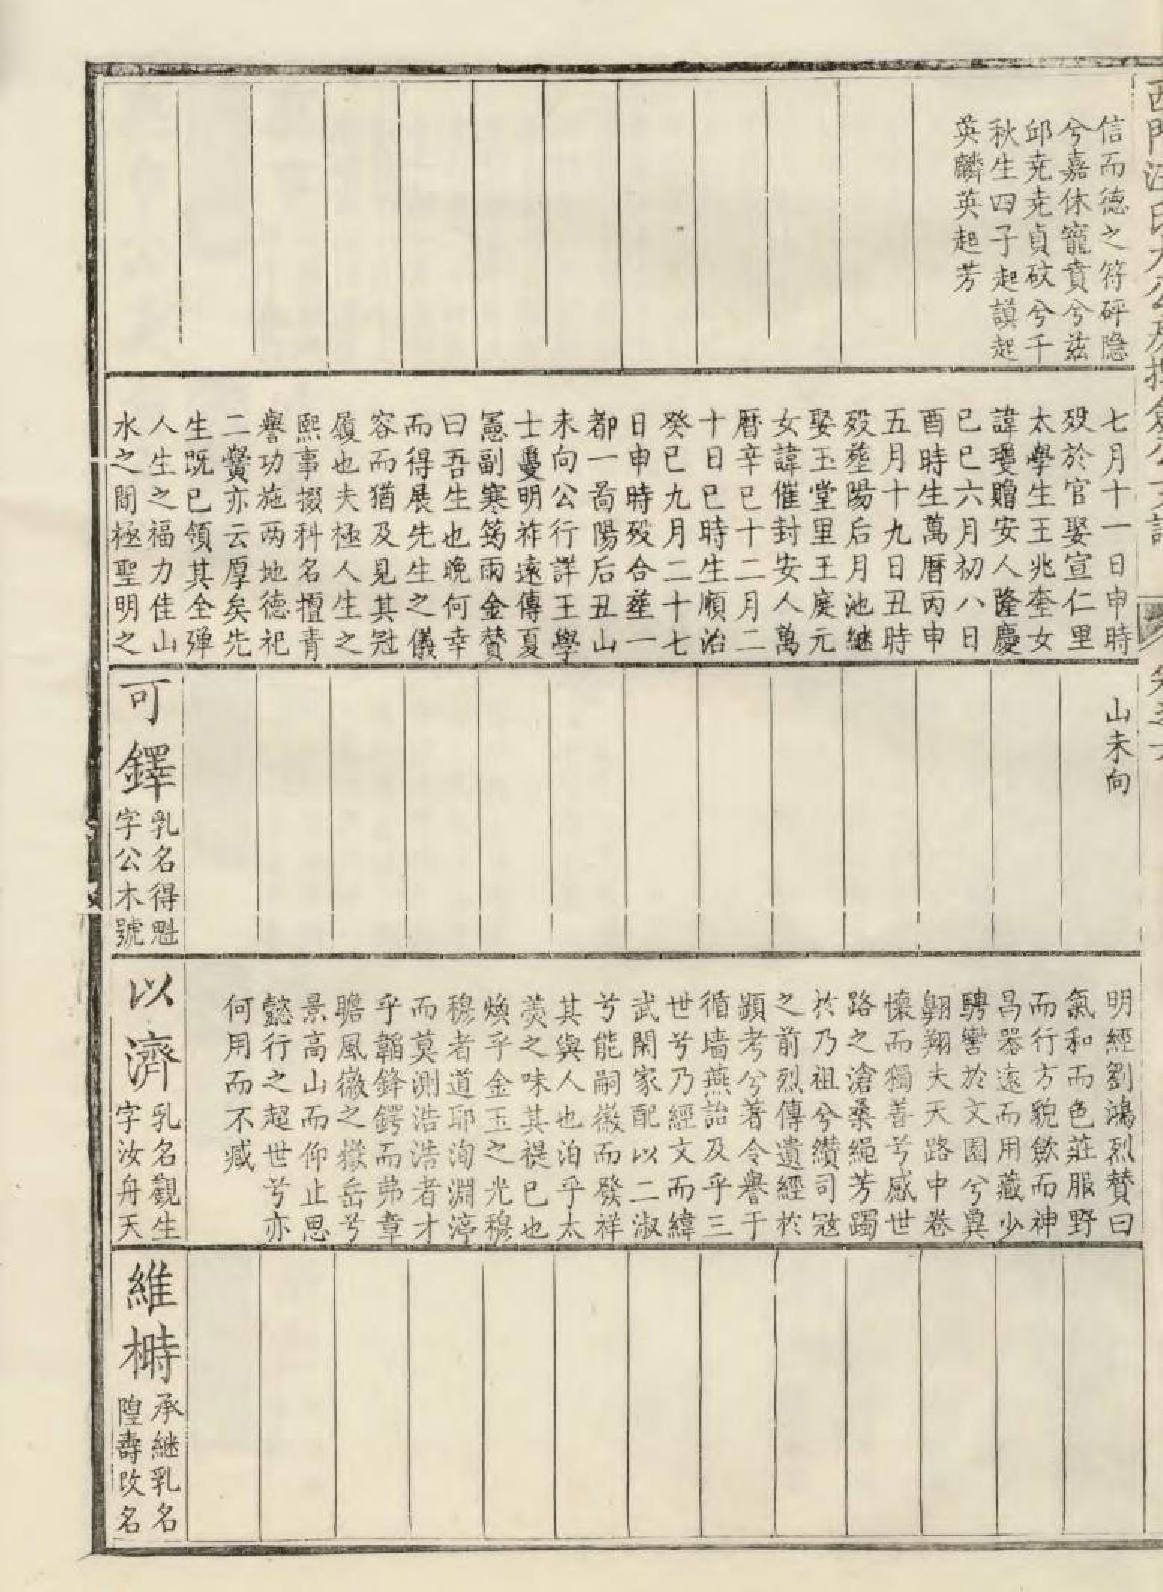 信而德之符砰隐
兮嘉休寵賁兮茲
邱尭尭貞砥兮千
秋生四子起謨起
英麟英起芳
七月十一日申時
殁於官娶宣仁里
太學生王兆奎女
諱瓊贈安人隆慶
已巳六月初八日
酉時生萬暦丙申
五月十九日丑時
殁塟陽后月池継
娶玉堂里王庭元
女諱催封安人萬
暦辛巳十二月二
十日巳時生順治
癸巳九月二十七
日申時殁合塟一
都一啚陽后丑山
未向公行詳王學
士曼明祚遠傳夏
憲副寒筠雨金賛
曰吾生也晚何幸
而得展先生之儀
容而猶及見其冠
履也夫極人生之
熙事掇科名擅青
譽功施两地德祀
二黌亦云厚矣先
生既已領其全殫
人生之福力佳山
水之間極聖明之
山未向
可鐸
乳名得魁
字公木號
明經劉鴻烈賛曰
氣和而色莊服野
而行方貌歛而神
昌器遠而用藏少
騁轡於文園兮冀
翺翔夫天路中卷
懐而獨善兮感世
路之滄桑繩芳躅
於乃祖兮纘司冦
之前烈傳遺經於
顕考兮著令譽于
循墙燕詒及乎三
世兮乃經文而緯
武閑家配以二淑
兮能嗣徽而發祥
其與人也泊乎太
羮之味其禔已也
煥乎金玉之光穆
穆者道耶洵淵渟
而莫測浩浩者才
乎韜鋒鍔而弗章
瞻風徽之㩀岳兮
景高山而仰止思
懿行之超世兮亦
何用而不臧
以濟
乳名觀生
字汝舟天
維榯
承継乳名
隍壽改名